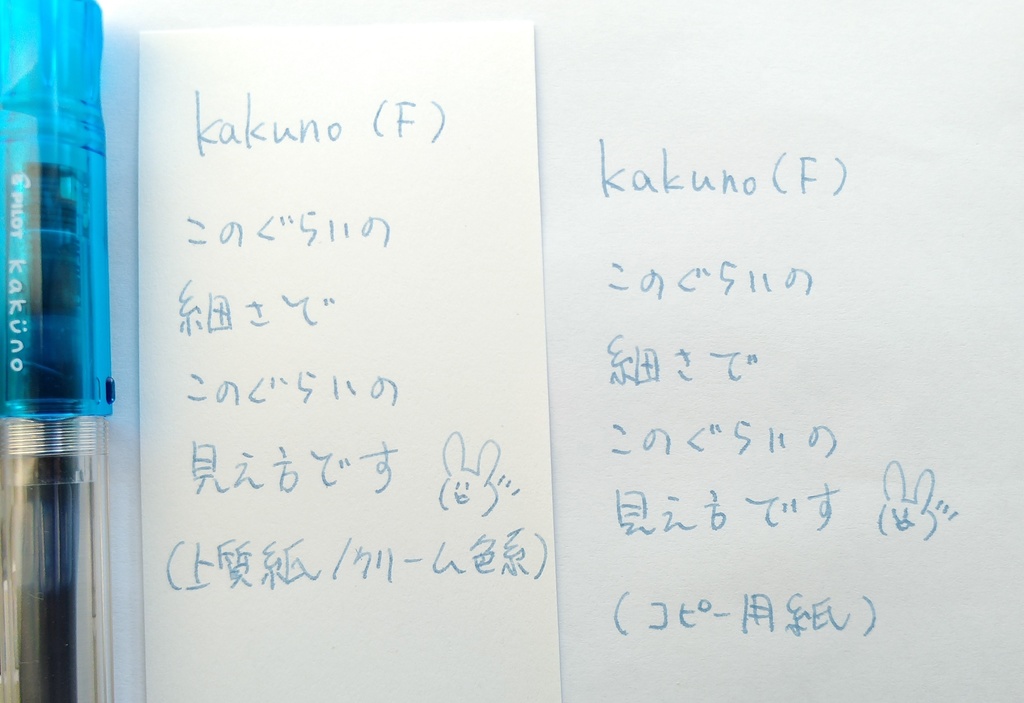 PILOT kaküno
kakuno (F)
このぐらいの
細さで
このぐらいの
見え方です
(上質紙/クリーム色系)
kakuno (F)
このぐらいの
細さで
このぐらいの
見え方です
(コピー用紙)